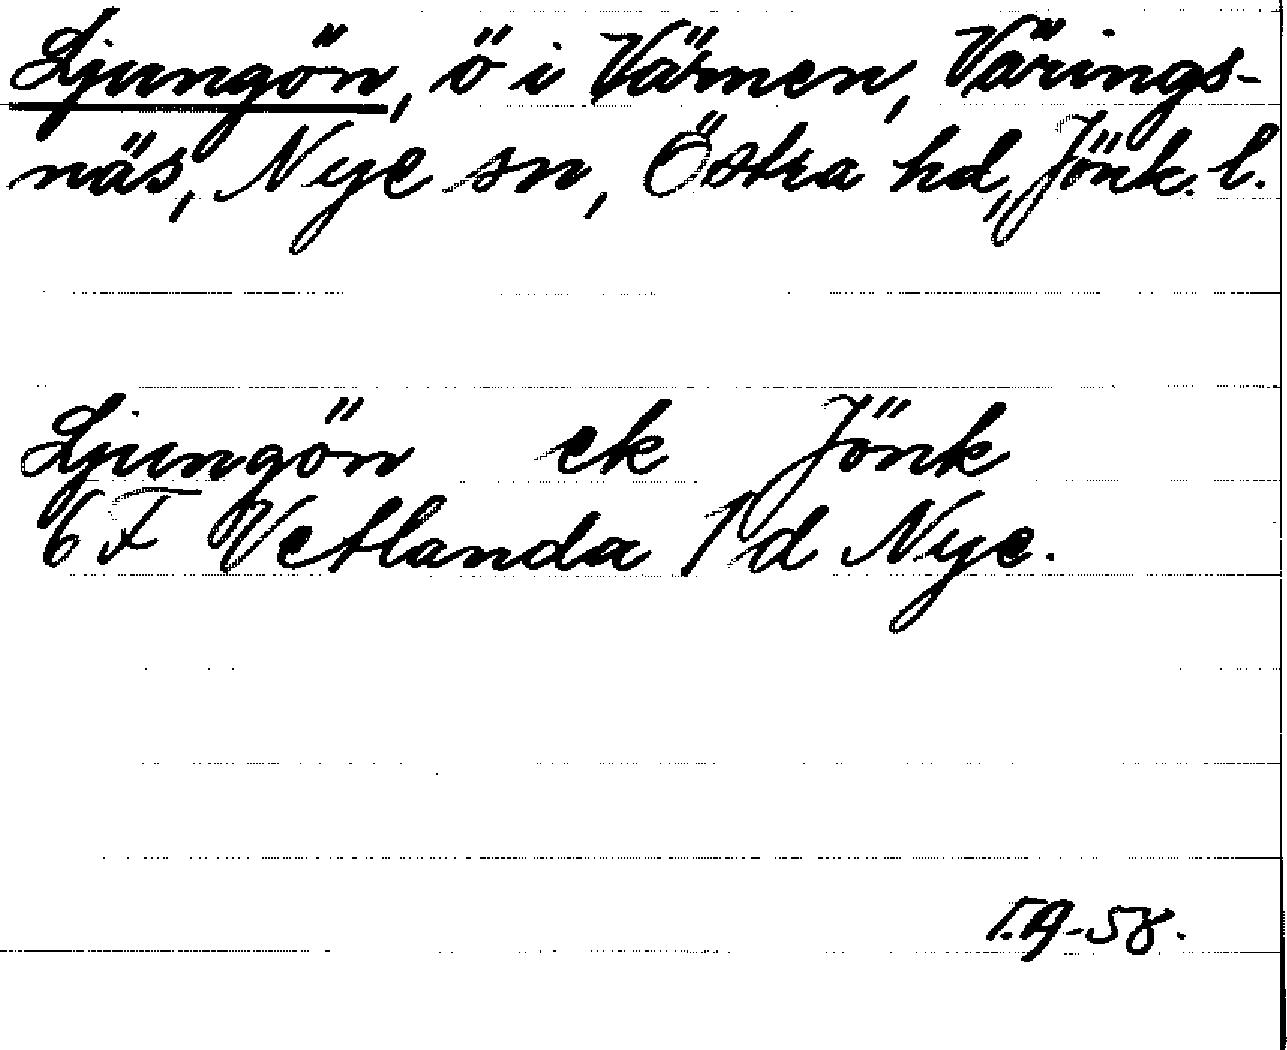 Ljungön, ö i Värnen, Värings-
näs, Nye sn, Östra hd, Jönk. l.
Ljungön ek Jönk
6 F Vetlanda 1 d Nye.
-58.